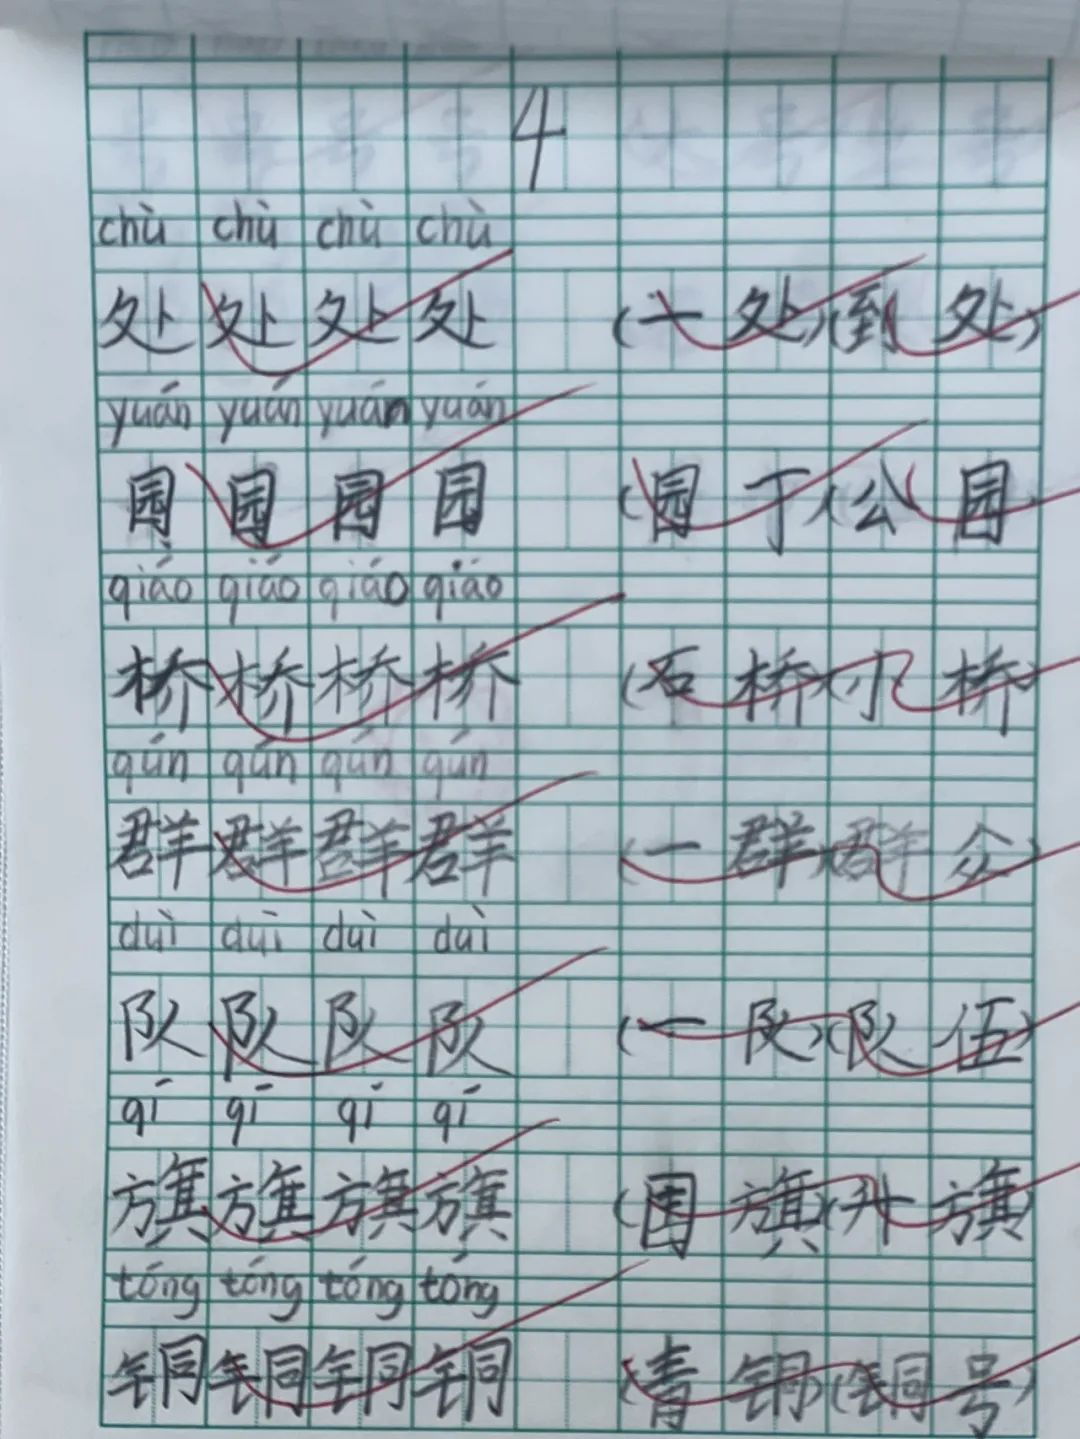 4
chù chù chù chù
处处处处 (一处)(到处)
yuán yuán yuán yuán
园园园园 (园丁)(公园)
qiáo qiáo qiáo qiáo
桥桥桥桥 (石桥)(小桥)
qún qún qún qún
群群群群 (一群)(群众)
duì duì duì duì
队队队队 (一队)(队伍)
qí qí qí qí
旗旗旗旗 (国旗)(升旗)
tóng tóng tóng tóng
铜铜铜铜 (青铜)(铜号)